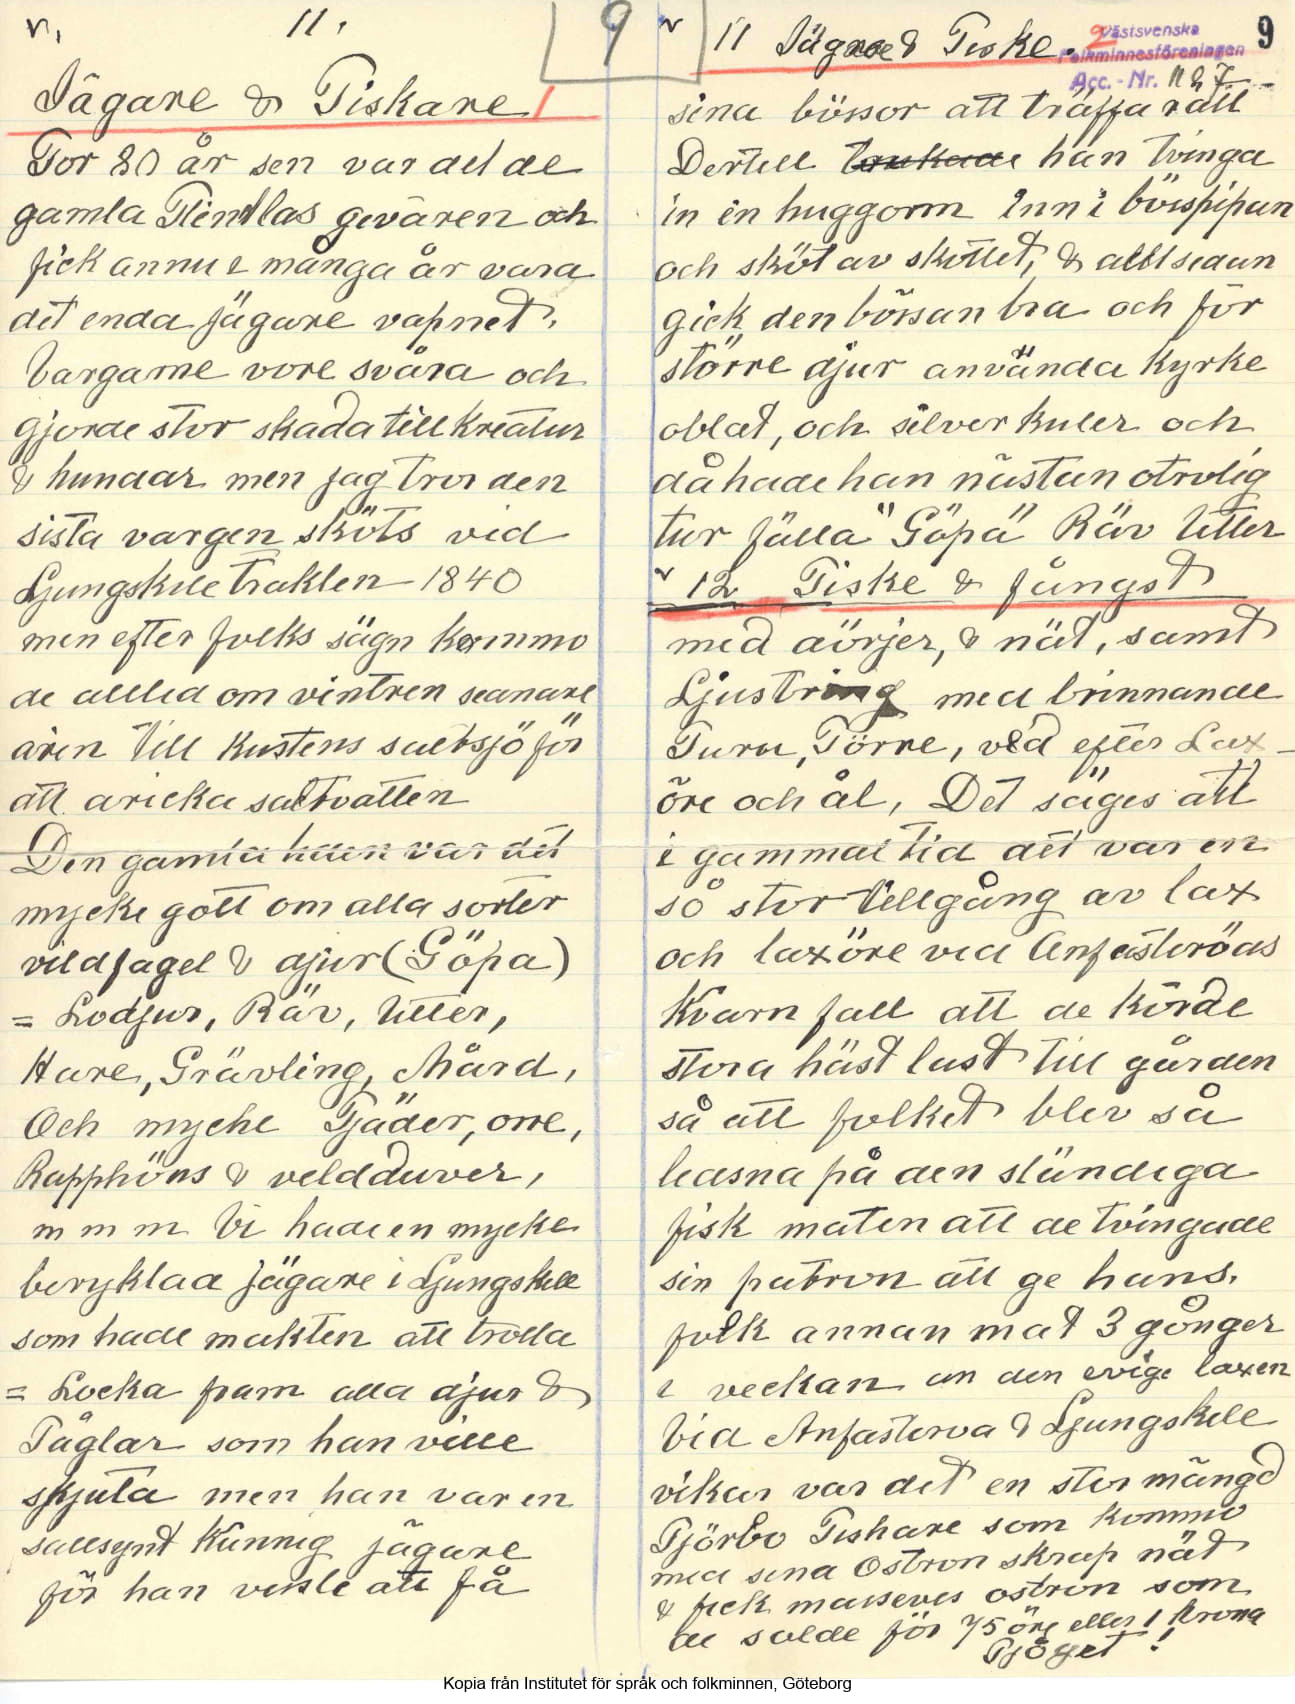 v. 11.
9
Jägare & Fiskare
For 80 år sen var det de
gamla Flintlas gevären och
fick annu i många år vara
det enda jägare vapnet.
Vargarne vore svåra och
gjorde stor skada till kreatur
& hundar men jag tror den
sista vargen sköts vid
Ljungskile trakten 1840
men efter folks sägn kommo
de alltid om vintren senare
åren till kustens saltsjö för
att dricka saltvatten
Den gamla tiden var det
mycke gott om alla sorter
vildfagel & djur (Göpa)
= Lodjur, Räv, Utter,
Hare, Grävling, Mård,
Och myche Tjäder, orre,
Rapphöns & veldduver,
m m m Vi hade en mycke
beryktad jägare i Ljungskile
som hade makten att trolla
= Locka fram alla djur &
Fåglar som han ville
skjuta men han var en
sallsynt kunnig jägare
för han visste att få
v 11 Jägare & Fiske. 2
Västsvenska
Folkminnesföreningen
Acc. - Nr.
9
sina bössor att träffa rätt
Dertill brukade han tvinga
in en huggorm inn i bösspipan
och sköt av skottet, & alltsedan
gick den bössan bra och för
större djur använda Kyrke
oblat, och silver kuler och
då hade han nästan otrolig
tur fälla "Göpa" Räv Utter
v 12 Fiske & fångst
med dörjer, & nät, samt
Ljustring med brinnande
Furu, Törre, ved efter Lax-
öre och ål, Det säges att
i gammal tid att var en
så stor tillgång av lax
och laxöre ved Anfasteröds
Kvarn fall att de körde
stora häst last till gården
så att folket blev så
ledsna på den ständiga
fisk maten att de tvingade
sin patron att ge hans.
folk annan mat 3 gånger
i veckan än den evige laxen
Vid Anfasterva & Ljungskile
vikar var det en stor mängd
Tjörbo Fiskare som kommo
med sina Ostron skrap nät
& fick massevis ostron som
de solde för 75 öre eller 1 Krona
Tjöget!
Kopia från Institutet för språk och folkminnen, Göteborg